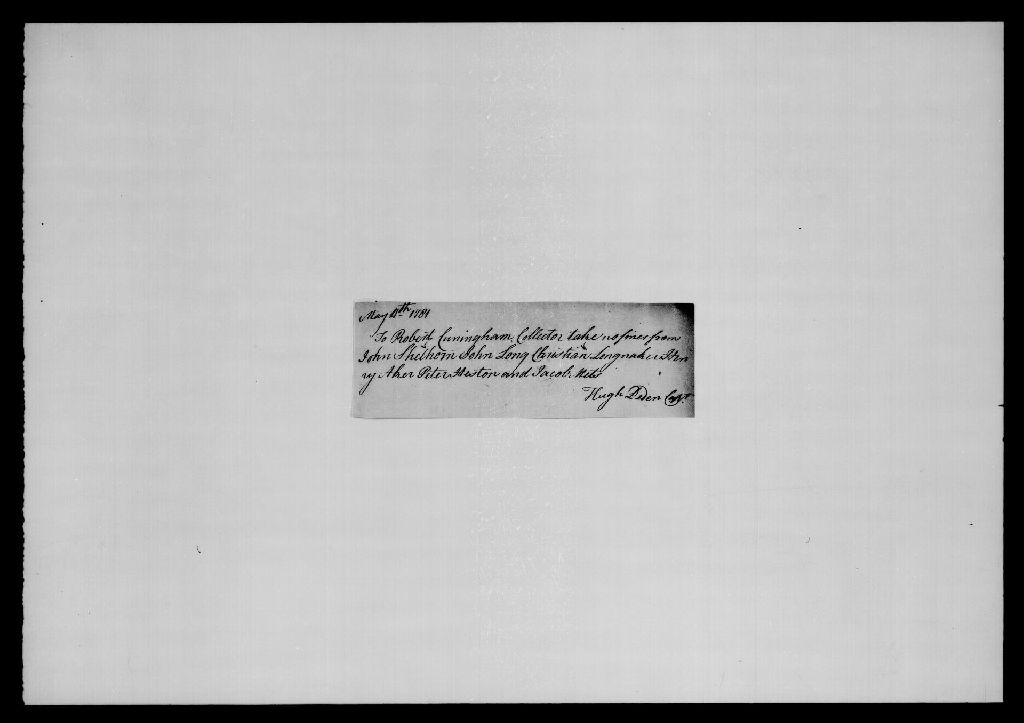 May 4th 1784
To Robert Cuningham Collector take no fines from
John Shelhorn John Long Christian Longnaker Hen
ry Aker Peter Heston and Jacob
Hugh Peden Capt.